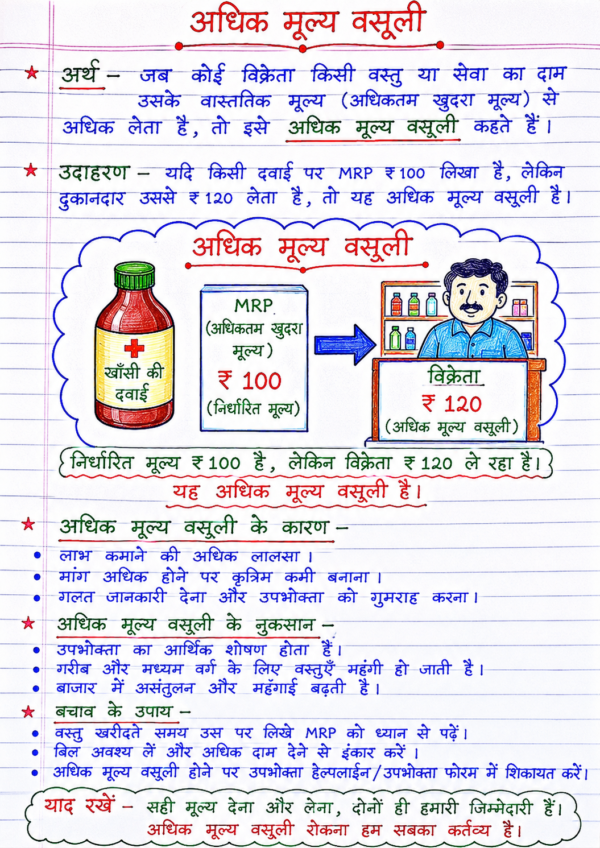 अधिक मूल्य वसूली
★ अर्थ – जब कोई विक्रेता किसी वस्तु या सेवा का दाम
उसके वास्ततिक मूल्य (अधिकतम खुदरा मूल्य) से
अधिक लेता है, तो इसे अधिक मूल्य वसूली कहते हैं।
★ उदाहरण – यदि किसी दवाई पर MRP ₹100 लिखा है, लेकिन
दुकानदार उससे ₹120 लेता है, तो यह अधिक मूल्य वसूली है।
अधिक मूल्य वसूली
खाँसी की
दवाई
MRP
(अधिकतम खुदरा
मूल्य)
₹ 100
(निर्धारित मूल्य)
विक्रेता
₹ 120
(अधिक मूल्य वसूली)
निर्धारित मूल्य ₹100 है, लेकिन विक्रेता ₹120 ले रहा है।
यह अधिक मूल्य वसूली है।
★ अधिक मूल्य वसूली के कारण –
• लाभ कमाने की अधिक लालसा।
• मांग अधिक होने पर कृत्रिम कमी बनाना।
• गलत जानकारी देना और उपभोक्ता को गुमराह करना।
★ अधिक मूल्य वसूली के नुकसान –
• उपभोक्ता का आर्थिक शोषण होता है।
• गरीब और मध्यम वर्ग के लिए वस्तुएँ महंगी हो जाती है।
• बाजार में असंतुलन और महँगाई बढ़ती है।
★ बचाव के उपाय –
• वस्तु खरीदते समय उस पर लिखे MRP को ध्यान से पढ़ें।
• बिल अवश्य लें और अधिक दाम देने से इंकार करें।
• अधिक मूल्य वसूली होने पर उपभोक्ता हेल्पलाईन/उपभोक्ता फोरम में शिकायत करें।
याद रखें – सही मूल्य देना और लेना, दोनों ही हमारी जिम्मेदारी हैं।
अधिक मूल्य वसूली रोकना हम सबका कर्तव्य है।